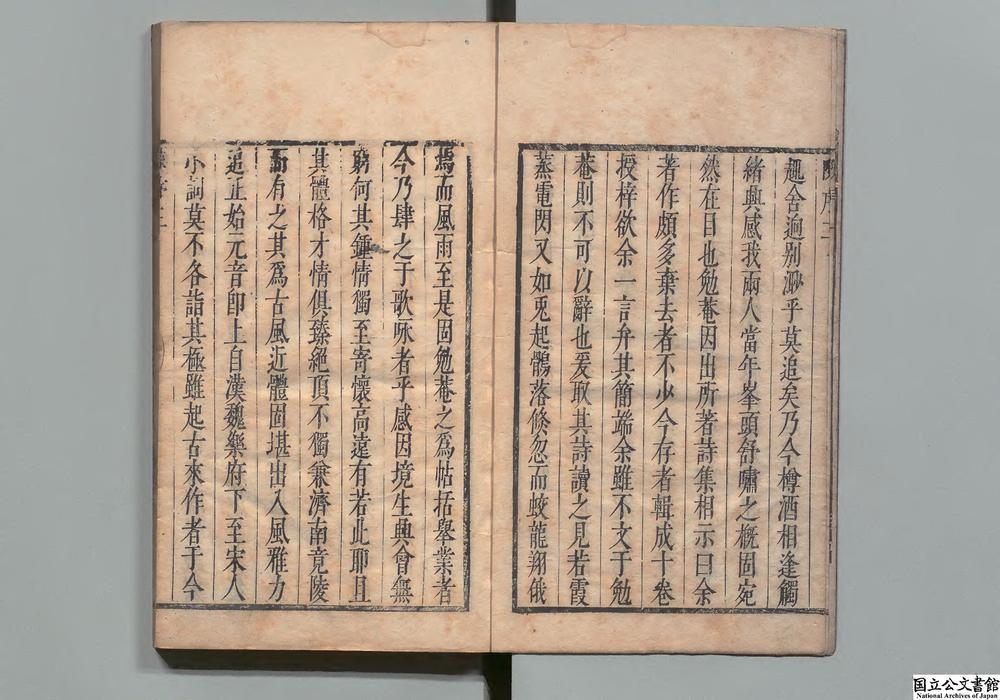 趣舍逈别渺乎莫追矣乃今樽酒相逢觸
緒興感我兩人當年峯頭舒嘯之槪固宛
然在目也勉菴因出所著詩集相示曰余
著作頗多棄去者不少今存者輯成十卷
授梓欲余一言弁其簡端余雖不文于勉
菴則不可以辭也爰取其詩讀之見若霞
蒸電閃又如兎起鶻落倐忽而蛟龍翔俄
焉而風雨至是固勉菴之爲帖括舉業者
今乃肆之于歌咏者乎感因境生興會無
窮何其鍾情獨至寄懷高遠有若此耶且
其體格才情俱臻絕頂不獨兼濟南竟陵
而有之其爲古風近體固堪出入風雅力
追正始元音卽上自漢魏樂府下至宋人
小詞莫不各詣其極雖起古來作者于今
国立公文書館
National Archives of Japan